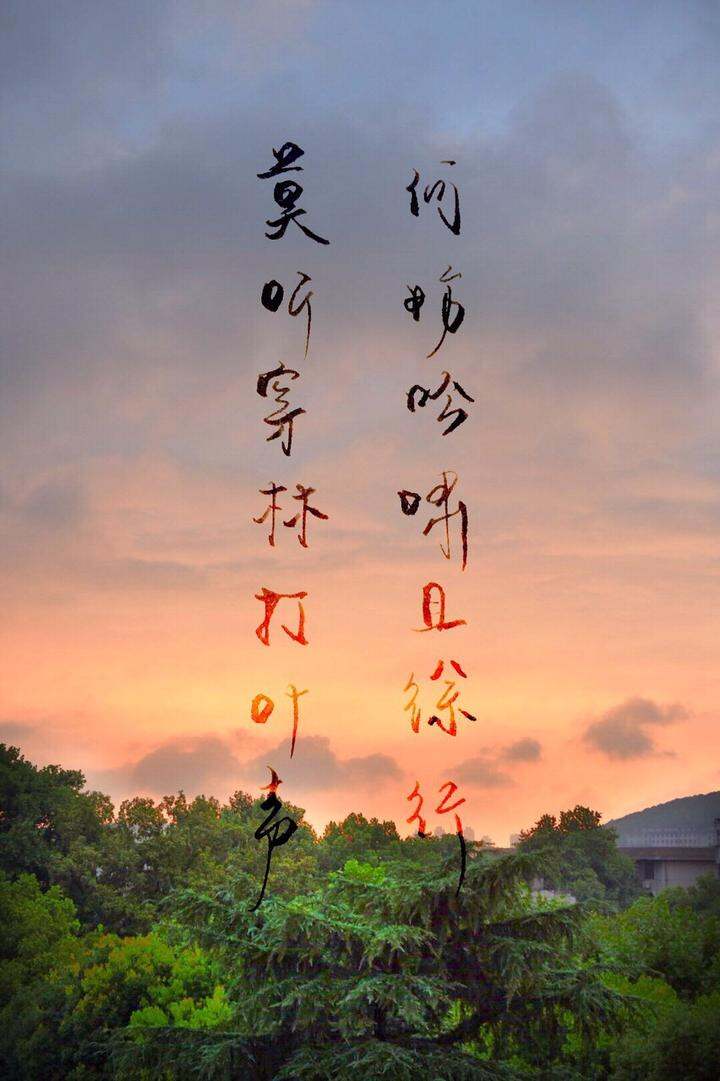 莫听穿林打叶声
何妨吟啸且徐行